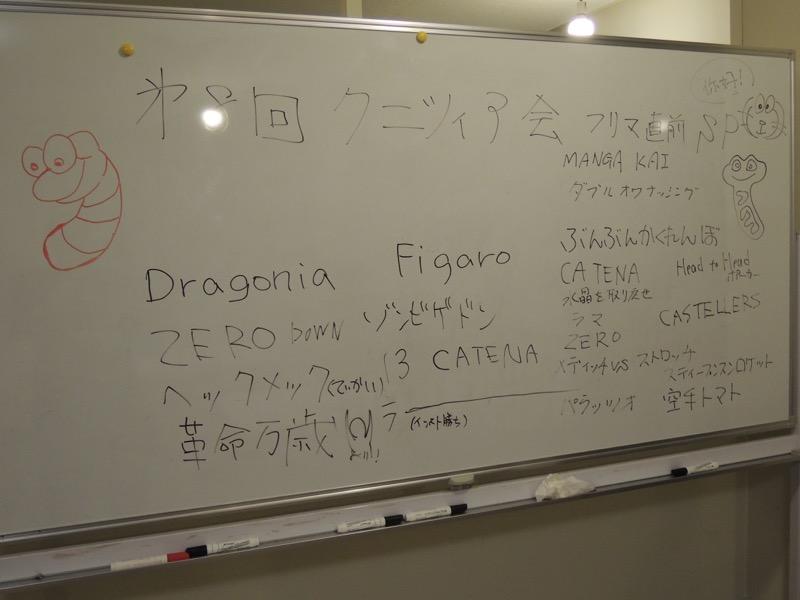 第8回 クニツィア会
フリマ直前 SP
你好!
MANGA KAI
ダブルオウナッシング
ぶんぶんかくれんぼ
CATENA Head to Head ポーカー
水晶を取り戻せ
ラマ CASTELLERS
ZERO
メディッチVS ストロッチ
スティーブンスンロケット
パラッツォ 空手トマト
Dragonia Figaro
ZERO DOWN ゾンビゲドン
ヘックメック(でかい) 13 CATENA
革命万歳
(インスト勝ち)